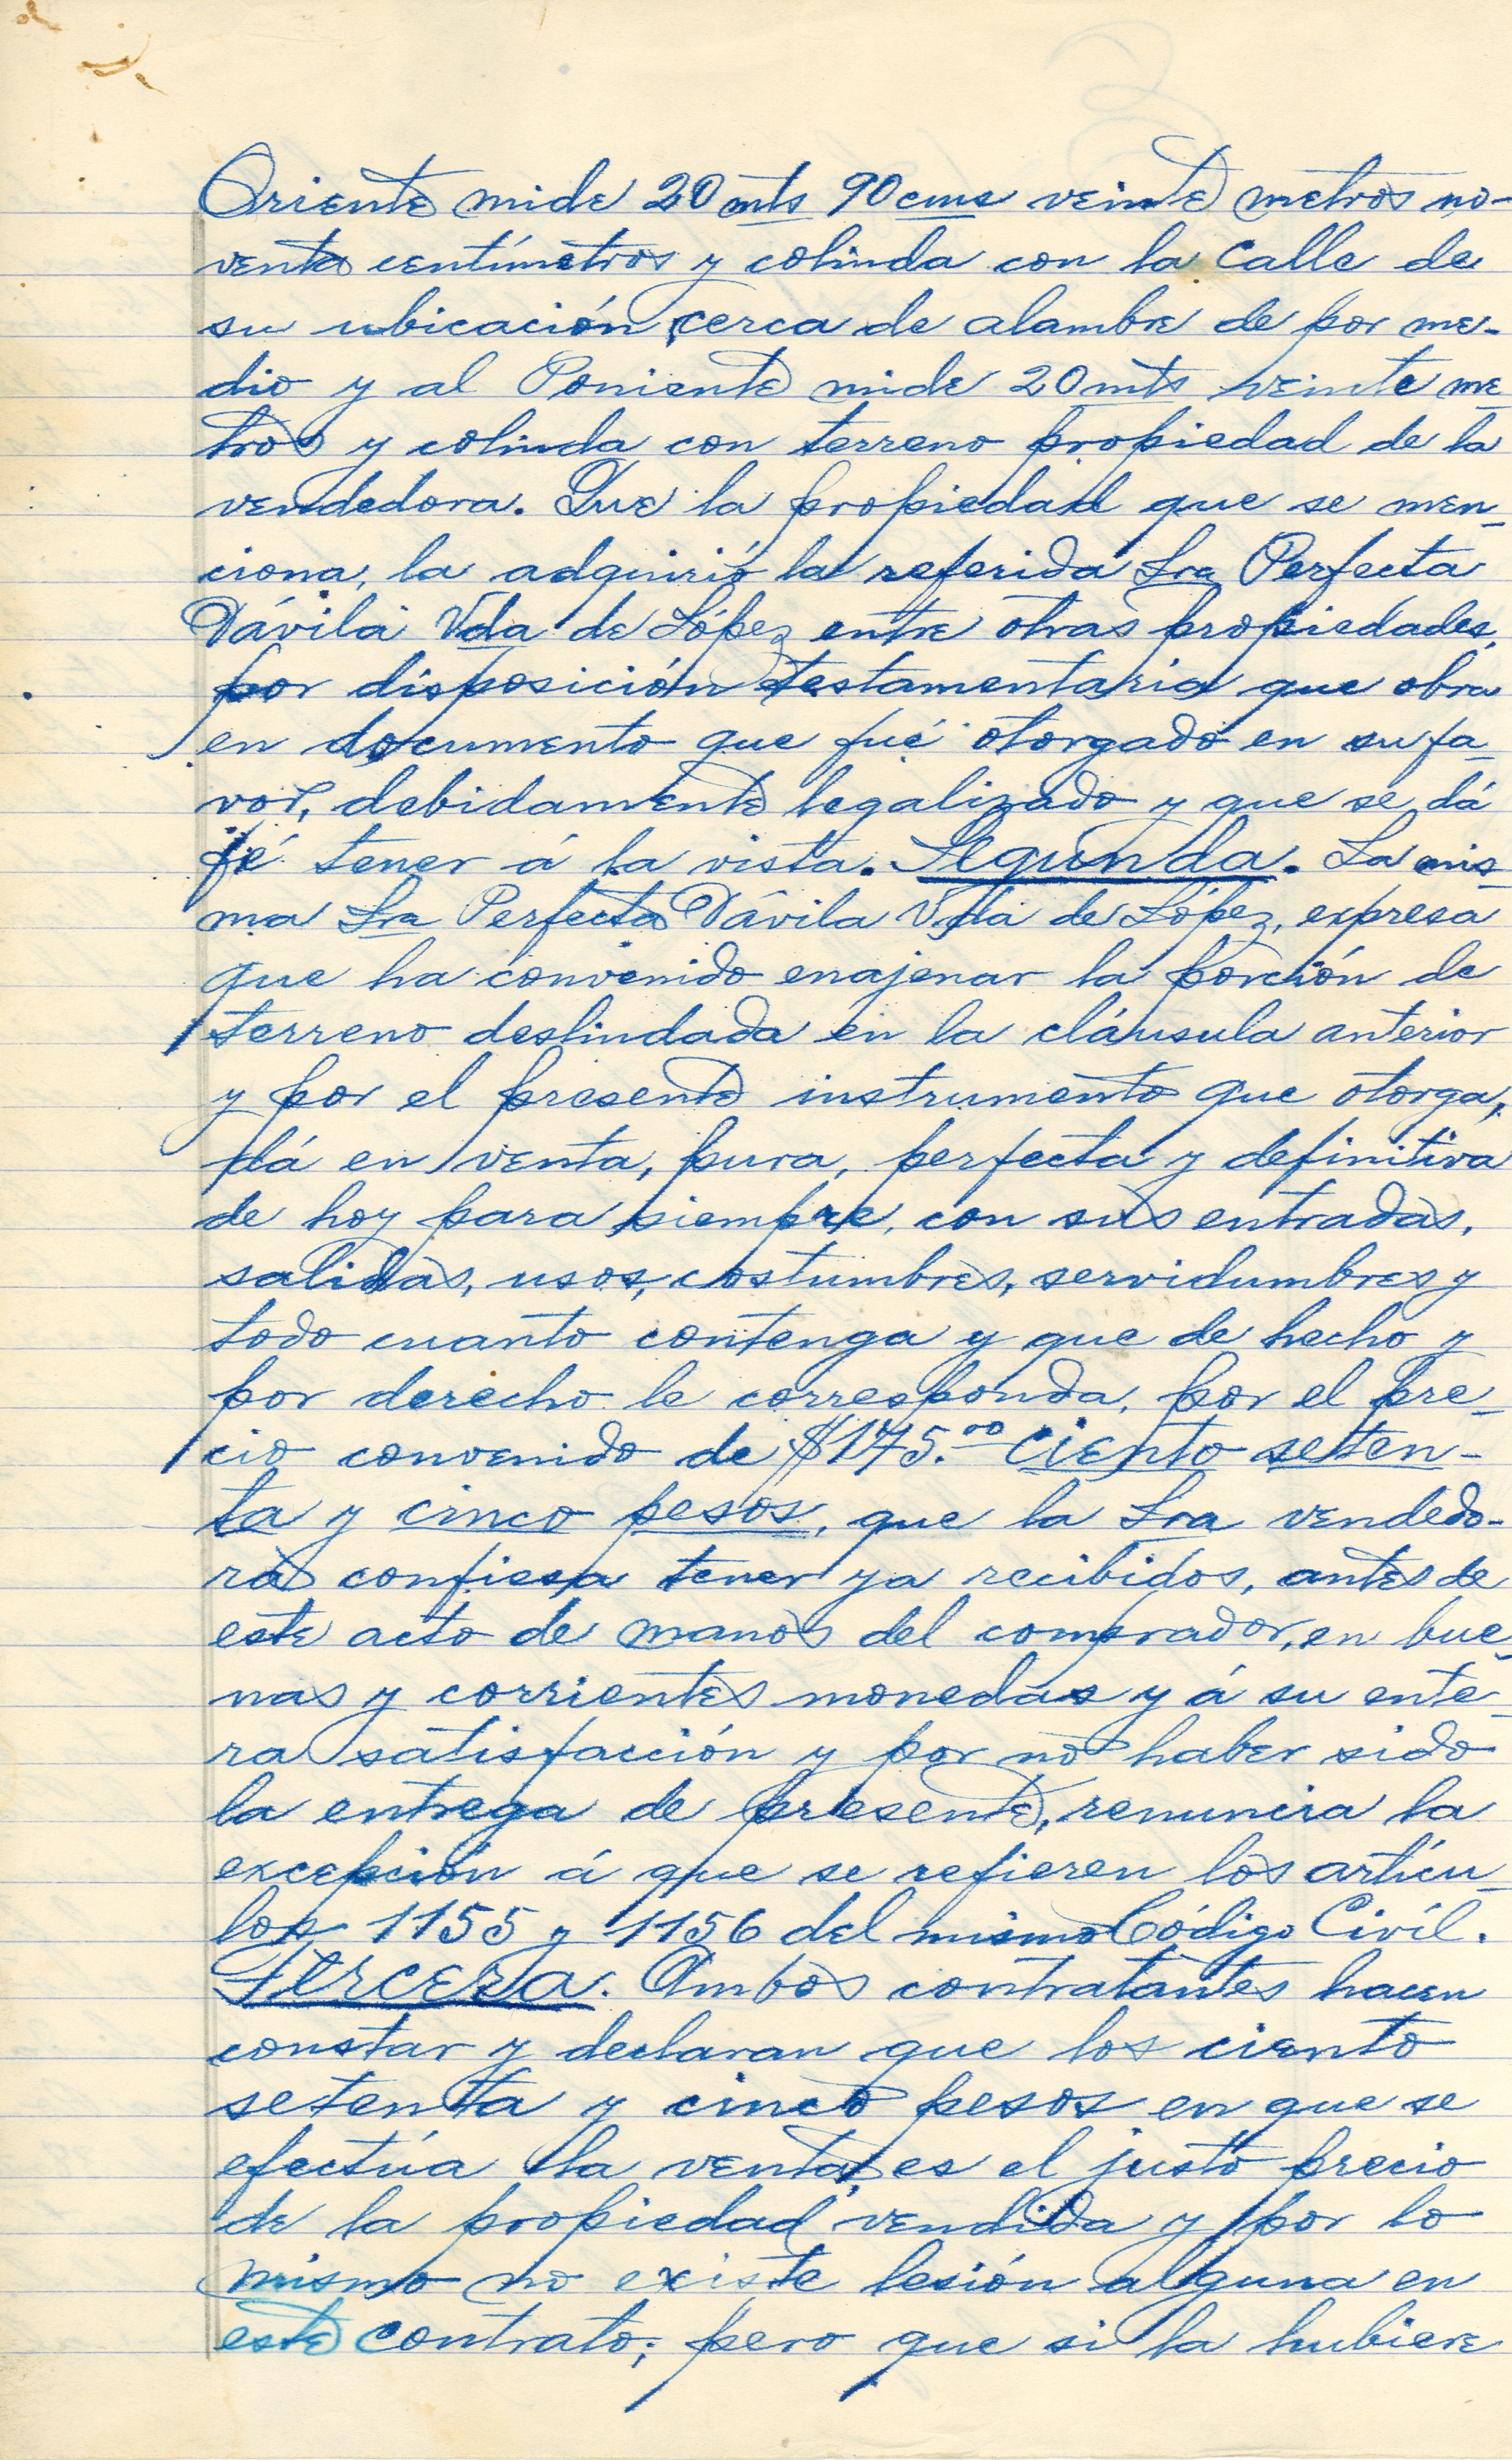 Oriente mide 20 mts 90 cms veinte metros no-
venta centímetros y colinda con la Calle de
su ubicación, cerca de alambre de por me-
dio y al Poniente mide 20 mts veinte me-
tros y colinda con terreno propiedad de la
vendedora. Que la propiedad que se men-
ciona, la adquirió la referida Sra Perfecta
Dávila Vda de López entre otras propiedades,
por disposición testamentaria que obra
en documento que fué otorgado en su fa-
vor, debidamente legalizado y que se dá
fé tener á la vista. Segunda. La mis-
ma Sra Perfecta Dávila Vda de López, expresa
que ha convenido enajenar la porción de
terreno deslindada en la cláusula anterior
y por el presente instrumento que otorga,
dá en venta, pura, perfecta y definitiva
de hoy para siempre, con sus entradas,
salidas, usos, costumbres, servidumbres y
todo cuanto contenga y que de hecho y
por derecho le corresponda, por el pre-
cio convenido de $175.00 Ciento seten-
ta y cinco pesos, que la Sra vendedo-
ra confiesa tener ya recibidos, antes de
este acto de manos del comprador, en bue-
nas y corrientes monedas y á su ente-
ra satisfacción y por no haber sido
la entrega de presente, renuncia la
excepción á que se refieren los artícu-
los 1155 y 1156 del mismo Código Civíl.
Tercera. Ambos contratantes hacen
constar y declaran que los ciento
setenta y cinco pesos en que se
efectúa la venta, es el justo precio
de la propiedad vendida y por lo
mismo no existe lesión alguna en
este contrato; pero que si la hubiere